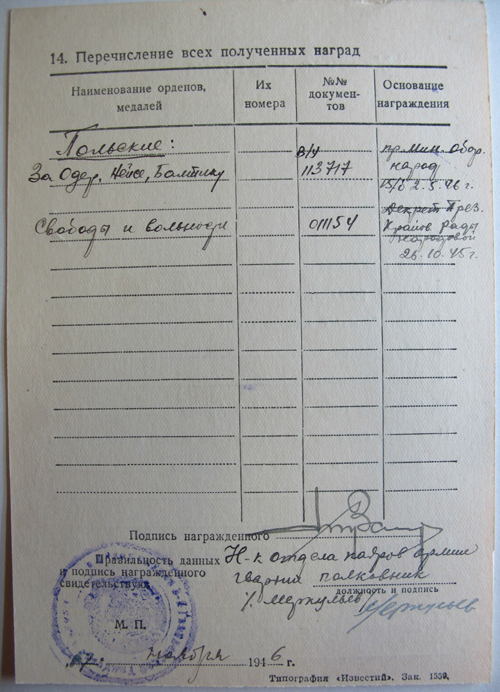 14. Перечисление всех полученных наград
Наименование орденов,
медалей
Их
номера
№№
докумен-
тов
Основание
награждения
Польские:
За Одер, Нейсе, Балтику
в/у
113717
пр. Мин. Обор.
народ
2.5.46 г.
Свободы и вольности
011154
Декрет През.
Крайов Рады
Народовой
26.10.45 г.
Подпись награжденного
Правильность данных
и подпись награжденного
свидетельствую
Н-к отдела кадров армии
гвардии полковник
должность и подпись
/. Меркульев
М. П.
ноября 1946 г.
Типография «Известий». Зак. 1550.